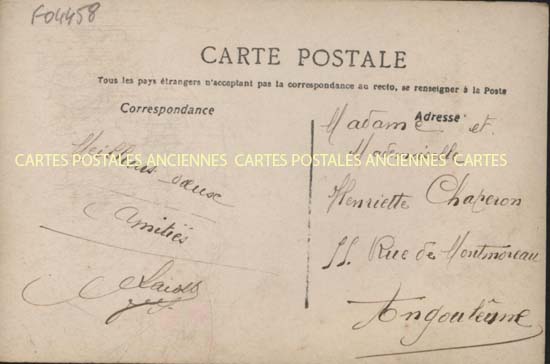 F04458
CARTE POSTALE
Tous les pays étrangers n'acceptant pas la correspondance au recto, se renseigner à la Poste
Correspondance
Adresse
Meilleurs vœux
Amitiés
Madame et
Mademoiselle
Henriette Chaperon
Rue de Montmoreau
Angoulême
CARTES POSTALES ANCIENNES CARTES POSTALES ANCIENNES CARTES